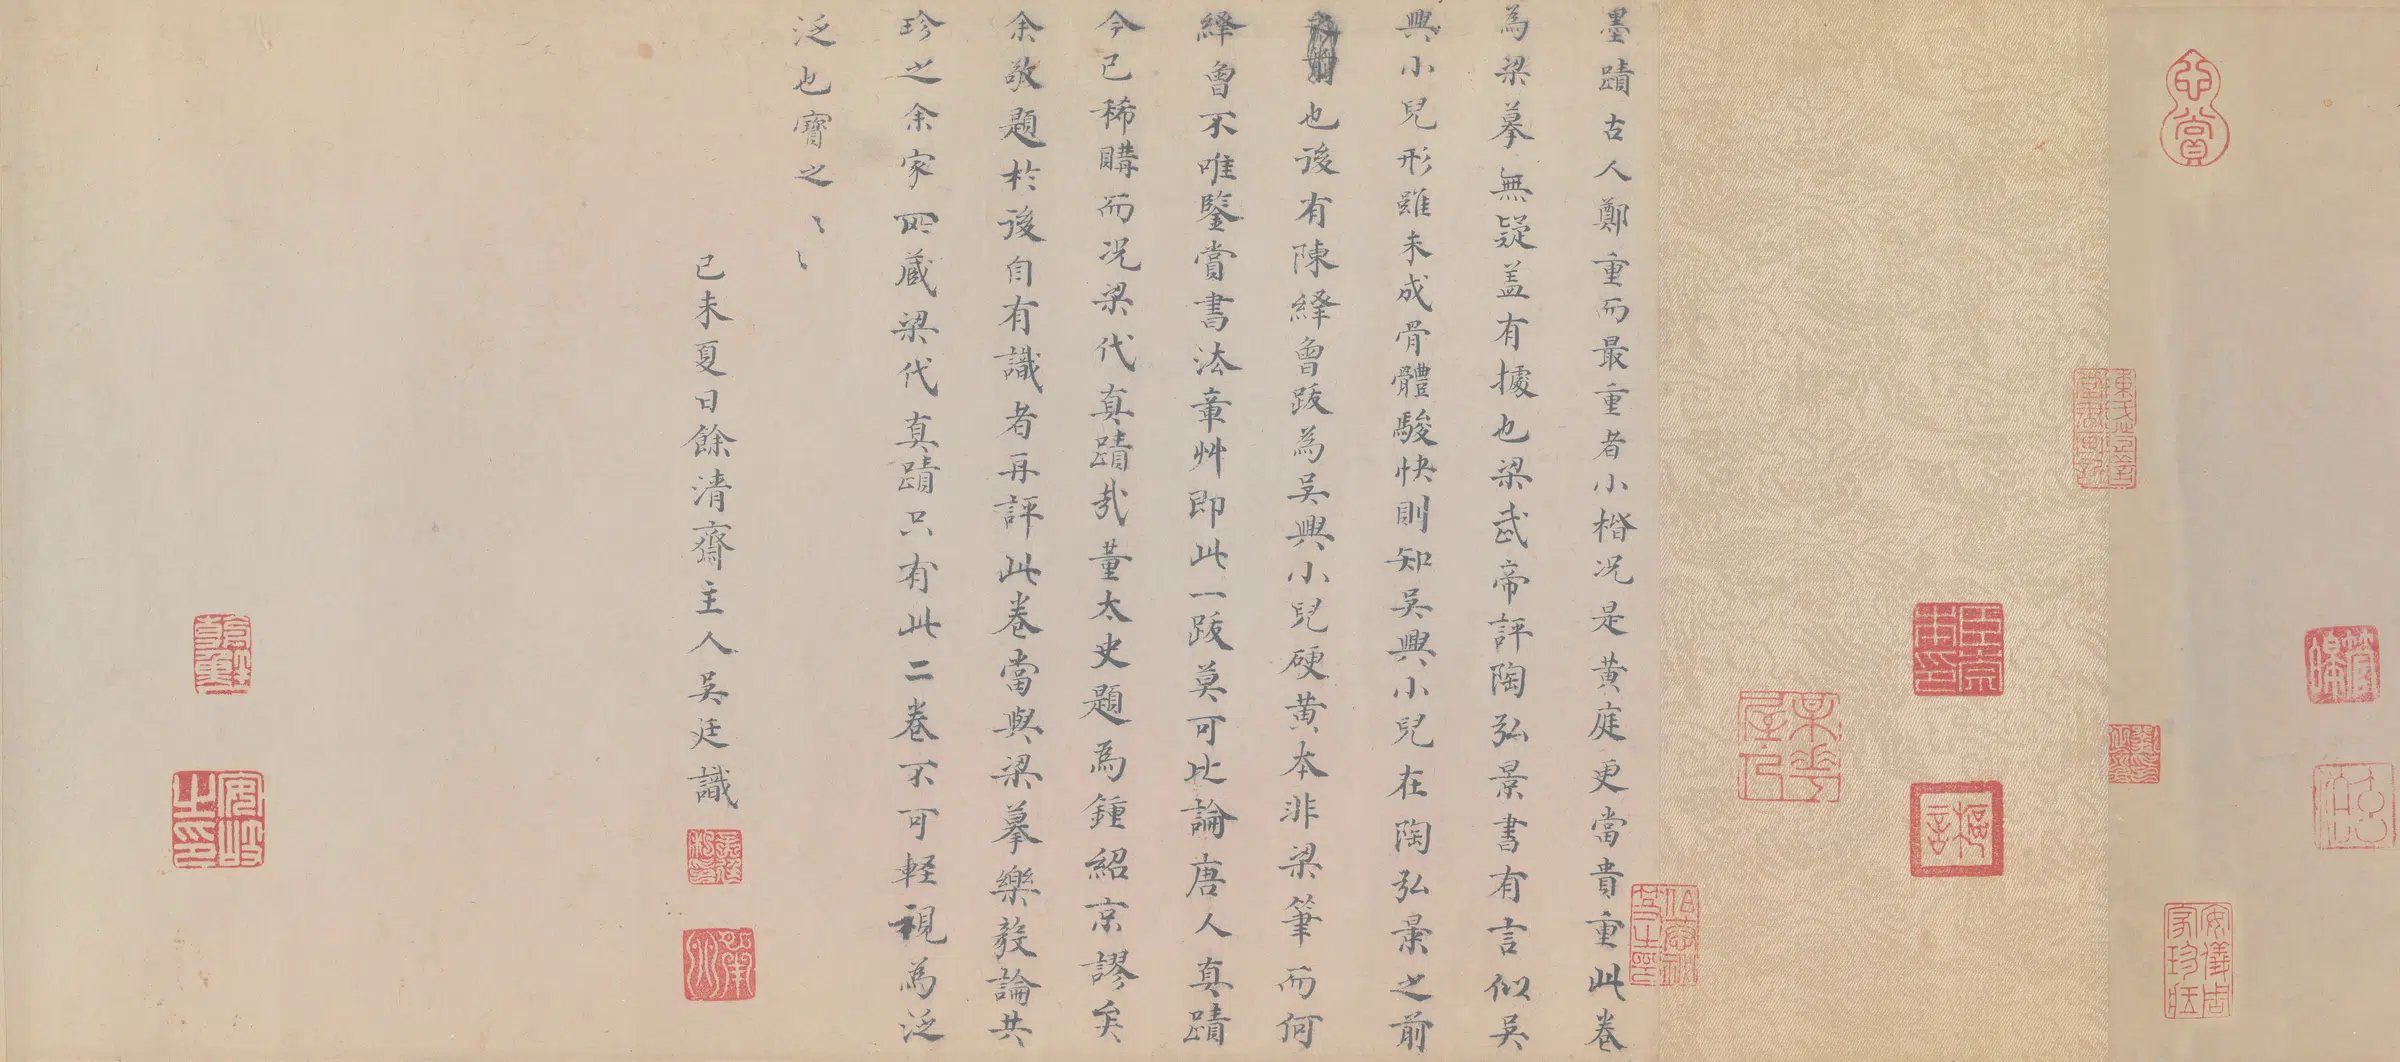 墨蹟古人鄭重而最重者小楷况是黄庭更當貴重此卷
為梁摹無疑盖有據也梁武帝評陶弘景書有言似吴
興小兒形雖未成骨體駿快則知吴興小兒在陶弘景之前
也後有陳繹曾跋為吴興小兒硬黄本非梁筆而何
繹曾不唯鑒賞書法章艸即此一跋莫可比論唐人真蹟
今已稀購而况梁代真蹟哉董太史題為鍾紹京謬矣
余敬題於後自有識者再評此卷當與梁摹樂毅論共
珍之余家所藏梁代真蹟只有此二卷不可輕視為泛
泛也寳之〻〻
己未夏日餘清齋主人吴廷識
心賞
安儀周家珍藏